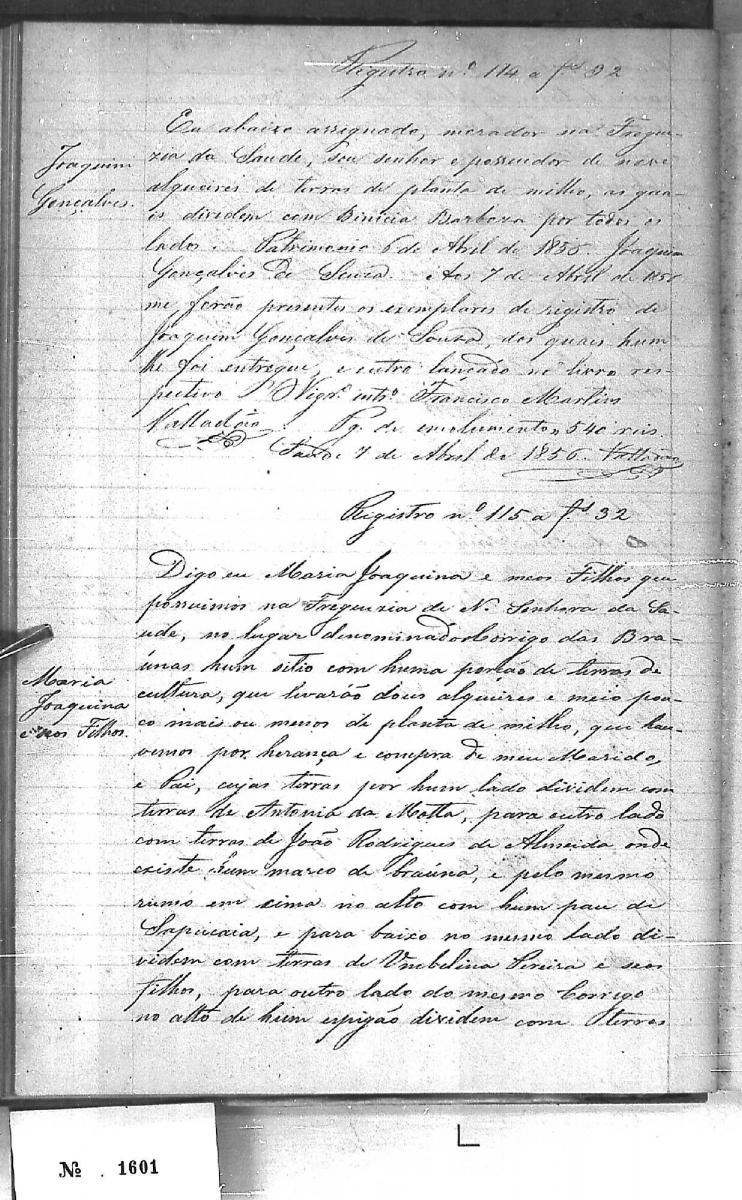 Registro nº 114 a fs 32
Joaquim
Gonçalves.
Eu abaixo assignado, morador na Fregue-
zia da Saude, sou senhor e possuidor de nove
alqueires de terras de planta de milho, as qua-
is dividem com Binicia Barboza por todos os
lados. Patrimonio 6 de Abril de 1856. Joaquim
Gonçalves de Souza. Aos 7 de Abril de 1856
me forão presentes os exemplares de registro de
Joaquim Gonçalves de Souza, dos quais hum
lhe foi entregue, e outro lançado no livro res-
pectivo O Vigrº intº Francisco Martins
Valladão. Pg. de emolumento 540 reis.
Saude 7 de Abril de 1856. Valladão
Registro nº 115 a fs 32
Maria
Joaquina
e seos Filhos.
Digo eu Maria Joaquina e meos Filhos que
possuimos na Freguezia de N. Senhora da Sa-
ude, no lugar denominado Corrigo das Bra-
únas hum sitio com huma porção de terras de
cultura, que levarão dous alqueires e meio pou-
co mais ou menos de planta de milho, que hou-
vemos por herança e compra de meu Marido,
e Pai, cujas terras por hum lado dividem com
terras de Antonia da Motta, para outro lado
com terras de João Rodrigues de Almeida onde
existe hum marco de braúna, e pelo mesmo
rumo em cima no alto com hum pau de
Sapucaia, e para baixo no mesmo lado di-
videm com terras de Umbelina Pereira e seos
filhos, para outro lado do mesmo Corrigo
no alto de hum espigão dividem com terras
Nº 1601